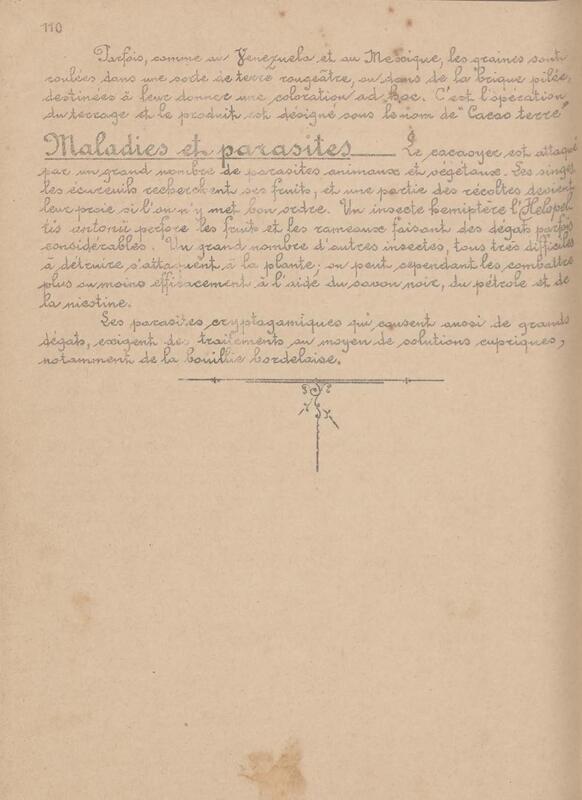 110
Parfois, comme au Venezuela et au Mexique, les graines sont
roulées dans une sorte de terre rougeâtre, ou dans de la brique pilée,
destinées à leur donner une coloration ad hoc. C'est l'opération
du terrage et le produit est désigné sous le nom de "Cacao terré"
Maladies et parasites Le cacaoyer est attaqué
par un grand nombre de parasites animaux et végétaux. Les singes
les écureuils recherchent ses fruits, et une partie des récoltes devient
leur proie si l'on n'y met bon ordre. Un insecte hémiptère l'Helopel-
tis antonii perfore les fruits et les rameaux faisant des dégats parfois
considérables. Un grand nombre d'autres insectes, tous très difficiles
à détruire s'attaquent à la plante; on peut cependant les combattre
plus ou moins efficacement à l'aide du savon noir, du pétrole et de
la nicotine.
Les parasites cryptogamiques qui causent aussi de grands
dégats, exigent des traitements au moyen de solutions cupriques,
notamment de la bouillie bordelaise.